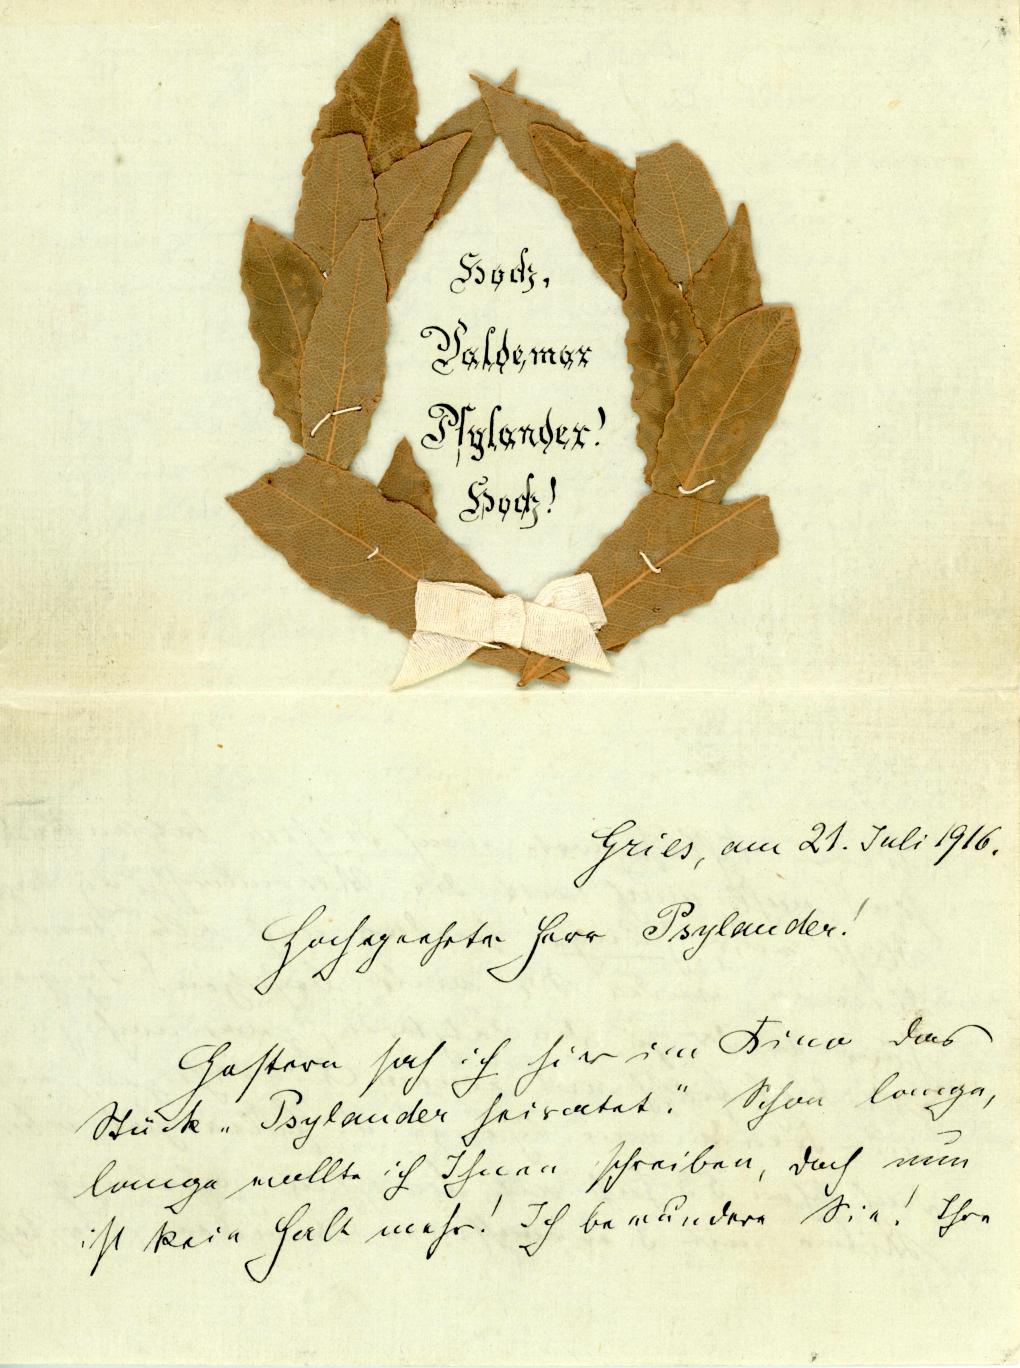 Hoch,
Valdemar
Psylander!
Hoch!
Gries, am 21. Juli 1916.
Hochgeehrter Herr Psylander!
Gestern sah ich hier im Kino das
Stück „Psylander heiratet." Schon lange,
lange wollte ich Ihnen schreiben, doch nun
ist kein Halt mehr! Ich bewundere Sie! Ihre